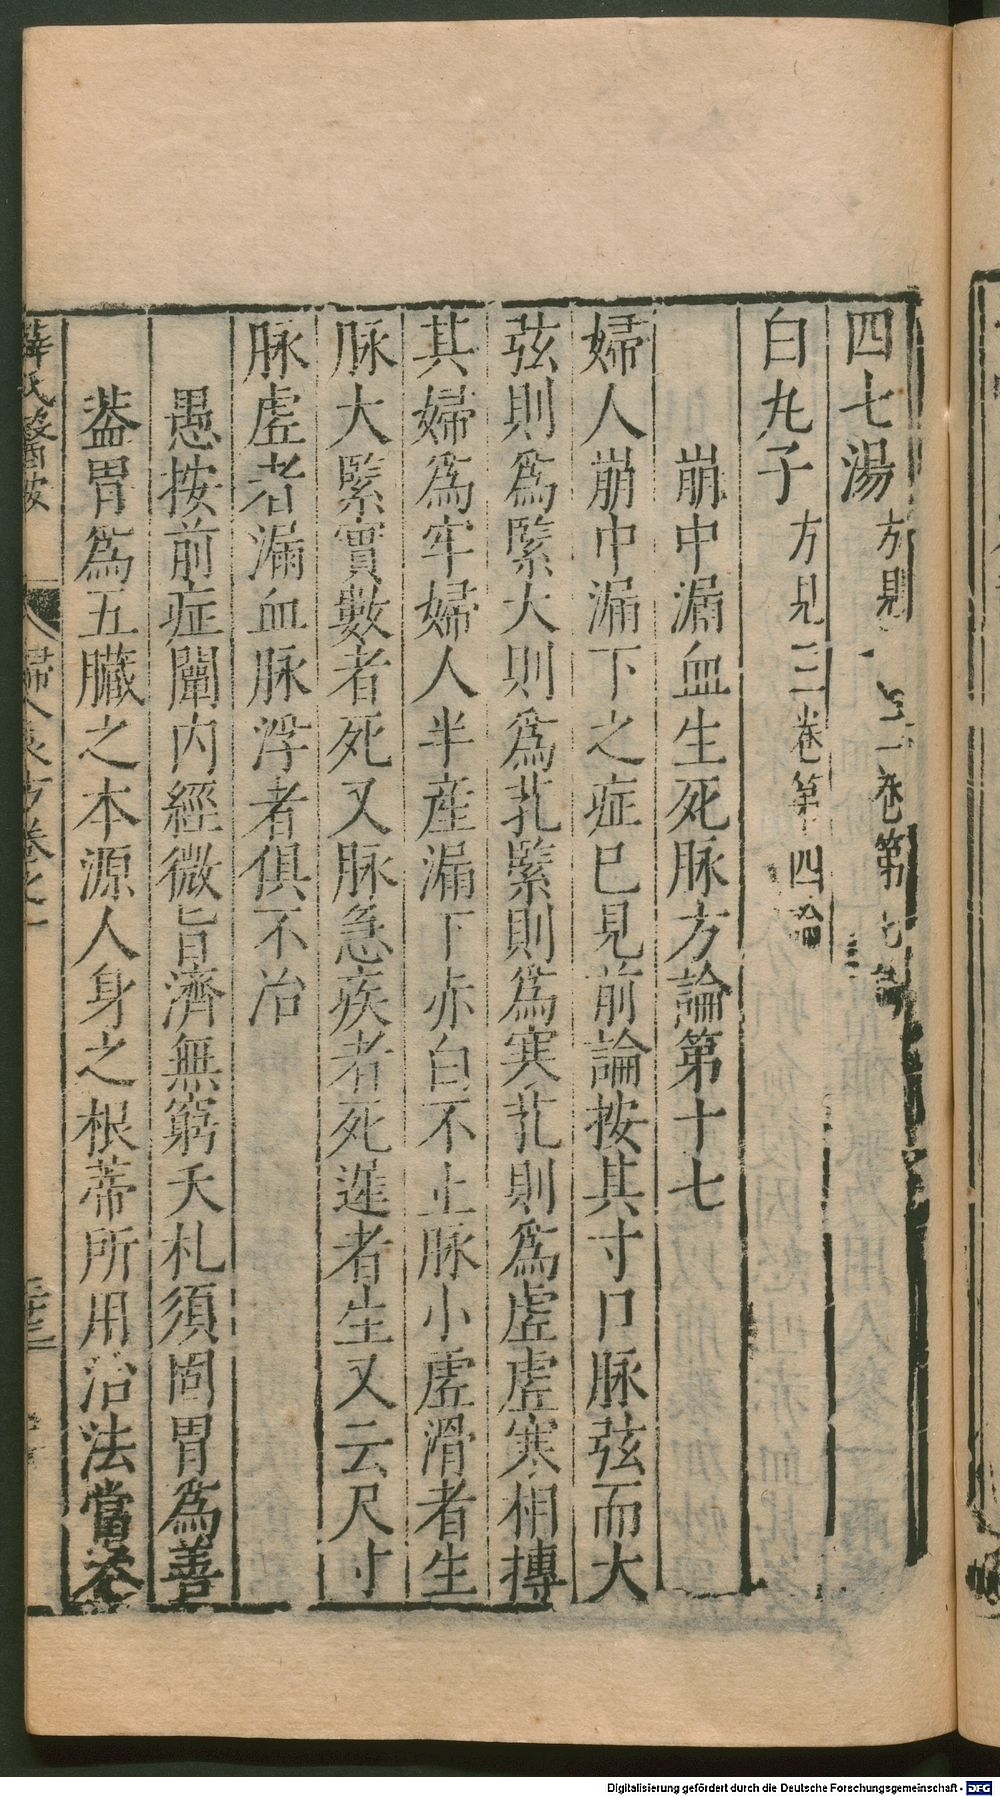 四七湯方見二卷第七論
白丸子方見三卷第十四論
崩中漏血生死脉方論第十七
婦人崩中漏下之症已見前論按其寸口脉弦而大
弦則爲緊大則爲芤緊則爲寒芤則爲虛虛寒相摶
其婦爲牢婦人半産漏下赤白不止脉小虛滑者生
脉大緊實數者死又脉急疾者死遲者生又云尺寸
脉虛者漏血脉浮者俱不治
愚按前症闡内經微旨濟無窮夭札須固胃爲善
葢胃爲五臟之本源人身之根蒂所用治法當叅
薛氏醫按 婦人良方卷之一
Digitalisierung gefördert durch die Deutsche Forschungsgemeinschaft - DFG